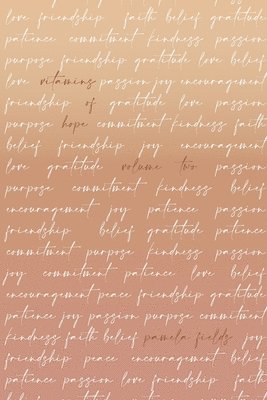 love friendship faith belief gratitude
patience commitment kindness passion
purpose friendship gratitude belief joy
love vitamins passion joy encouragement
friendship of gratitude love passion
purpose hope commitment kindness faith
belief friendship joy encouragement
love gratitude volume two passion
purpose commitment kindness belief
encouragement joy patience passion
friendship belief gratitude patience
commitment purpose kindness passion
joy commitment patience love belief
encouragement peace friendship gratitude
patience joy passion purpose commitment
kindness faith belief pamela fields joy
friendship peace encouragement belief
patience passion love friendship faith
belief gratitude patience commitment